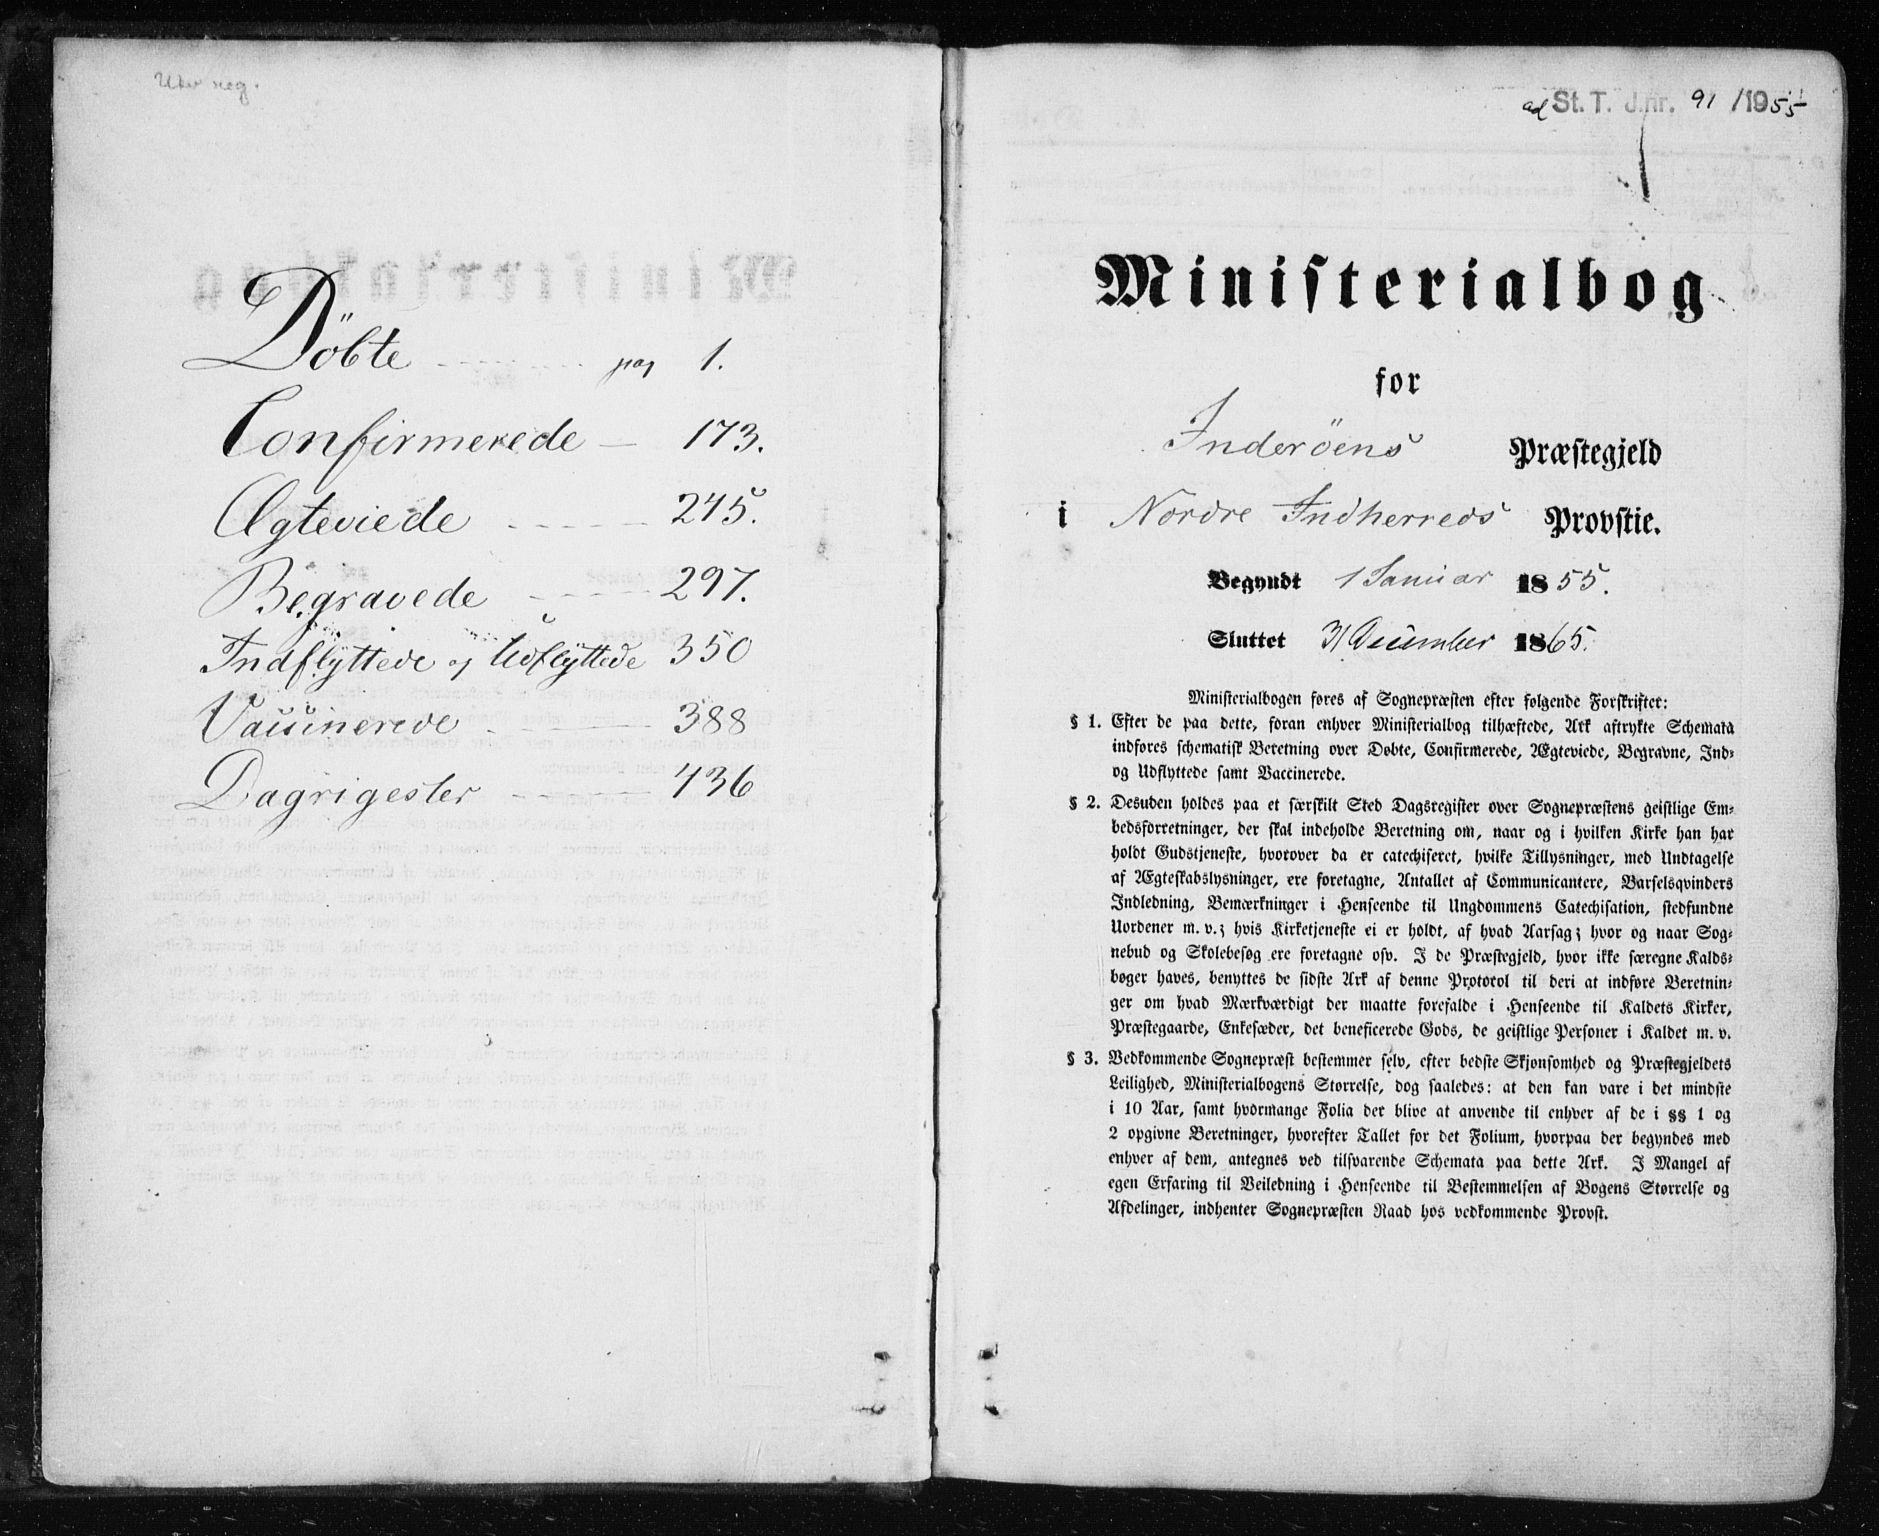 Döbte pag 1.
Confirmerede 173.
Ægteviede 245.
Begravede 297.
Indflyttede og Udflyttede 350
Vaccinerede 388
Dagrigester 436
ad St. T. J.nr. 91 /1955
Ministerialbog
for
Inderöens Præstegjeld
i Nordre Indherreds Provstie.
Begyndt 1 Januar 1855.
Sluttet 31 December 1865.
Ministerialbogen føres af Sognepræsten efter følgende Forskrifter:
§ 1. Efter de paa dette, foran enhver Ministerialbog tilhæftede, Ark aftrykte Schemata
indføres schematisk Beretning over Døbte, Confirmerede, Ægteviede, Begravne, Ind-
og Udflyttede samt Vaccinerede.
§ 2. Desuden holdes paa et særskilt Sted Dagsregister over Sognepræstens geistlige Em-
bedsforretninger, der skal indeholde Beretning om, naar og i hvilken Kirke han har
holdt Gudstjeneste, hvorover da er catechiseret, hvilke Tillysninger, med Undtagelse
af Ægteskabslysninger, ere foretagne, Antallet af Communicantere, Barselsqvinders
Indledning, Bemærkninger i Henseende til Ungdommens Catechisation, stedfundne
Uordener m. v.; hvis Kirketjeneste ei er holdt, af hvad Aarsag; hvor og naar Sog-
nebud og Skolebesøg ere foretagne osv. I de Præstegjeld, hvor ikke særegne Kalds-
bøger haves, benyttes de sidste Ark af denne Protocol til deri at indføre Beretnin-
ger om hvad Mærkværdigt der maatte forefalde i Henseende til Kaldets Kirker,
Præstegaarde, Enkesæder, det beneficerede Gods, de geistlige Personer i Kaldet m. v.
§ 3. Vedkommende Sognepræst bestemmer selv, efter bedste Skjønsomhed og Præstegjeldets
Leilighed, Ministerialbogens Størrelse, dog saaledes: at den kan vare i det mindste
i 10 Aar, samt hvormange Folia der blive at anvende til enhver af de i §§ 1 og
2 opgivne Beretninger, hvorefter Tallet for det Folium, hvorpaa der begyndes med
enhver af dem, antegnes ved tilsvarende Schemata paa dette Ark. I Mangel af
egen Erfaring til Veiledning i Henseende til Bestemmelsen af Bogens Størrelse og
Afdelinger, indhenter Sognepræsten Raad hos vedkommende Provst.